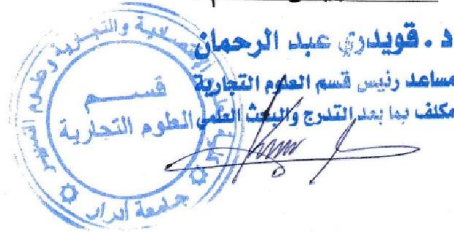 د . قويدري عبد الرحمان
مساعد رئيس قسم العلوم التجارية
مكلف بما بعد التدرج والبحث العلمي
قسم
العلوم التجارية
والتجارية وعلوم التسيير
جامعة أدرار